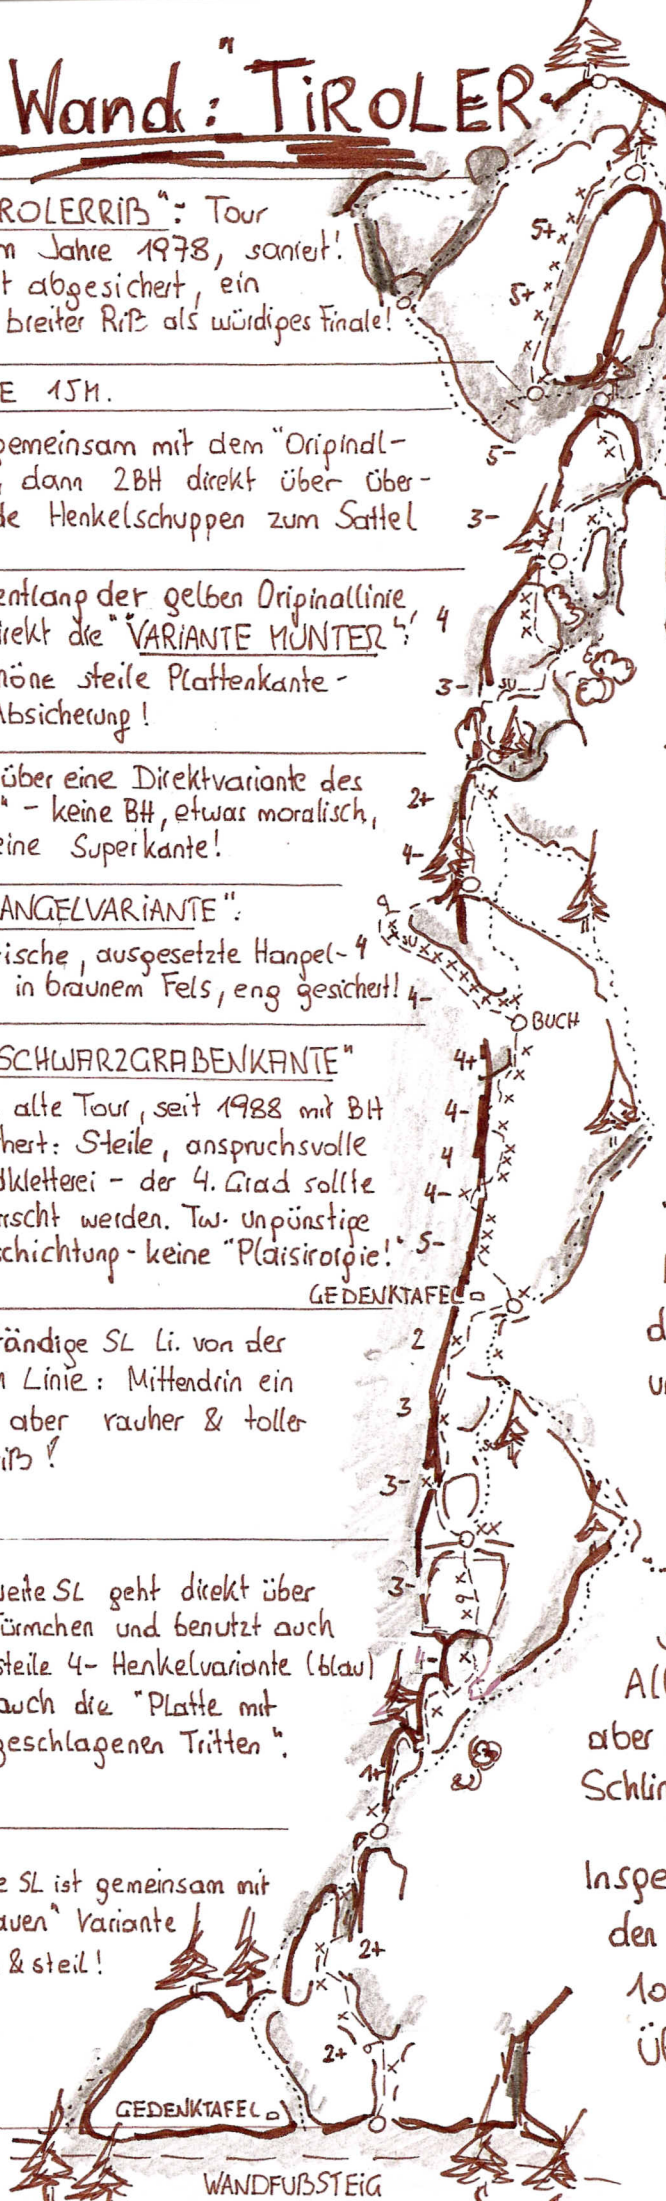 Wand: "TIROLER
ROLERRIß": Tour
m Jahre 1978, saniert!
t abgesichert, ein
breiter Riß als würdiges Finale!
5+
5+
E 15M.
gemeinsam mit dem "Original-
dann 2BH direkt über über-
de Henkelschuppen zum Sattel
5-
3-
entlang der gelben Originallinie,
irekt die "VARIANTE MUNTER"!
höne steile Plattenkante -
Absicherung!
4
3-
SU
über eine Direktvariante des
" - keine BH, etwas moralisch,
eine Superkante!
2+
4-
ANGELVARIANTE":
ische, ausgesetzte Hangel-
in braunem Fels, eng gesichert!
4
SU
4-
BUCH
SCHWARZGRABENKANTE"
alte Tour, seit 1988 mit BH
hert: Steile, anspruchsvolle
dkletterei - der 4. Grad sollte
rrscht werden. Tw. ungünstige
chichtung - keine "Plaisirorgie!"
4+
4-
4
4-
5-
GEDENKTAFEL
tändige SL Li. von der
n Linie: Mittendrin ein
aber rauher & toller
iß!
2
3
3-
3-
weite SL geht direkt über
ürmchen und benutzt auch
steile 4- Henkelvariante (blau)
auch die "Platte mit
geschlagenen Tritten".
4-
1+
e SL ist gemeinsam mit
auen" Variante
& steil!
2+
2+
GEDENKTAFEL
WANDFUßSTEIG
d
u
All
aber
Schlin
Inspe
den
10
ÜB